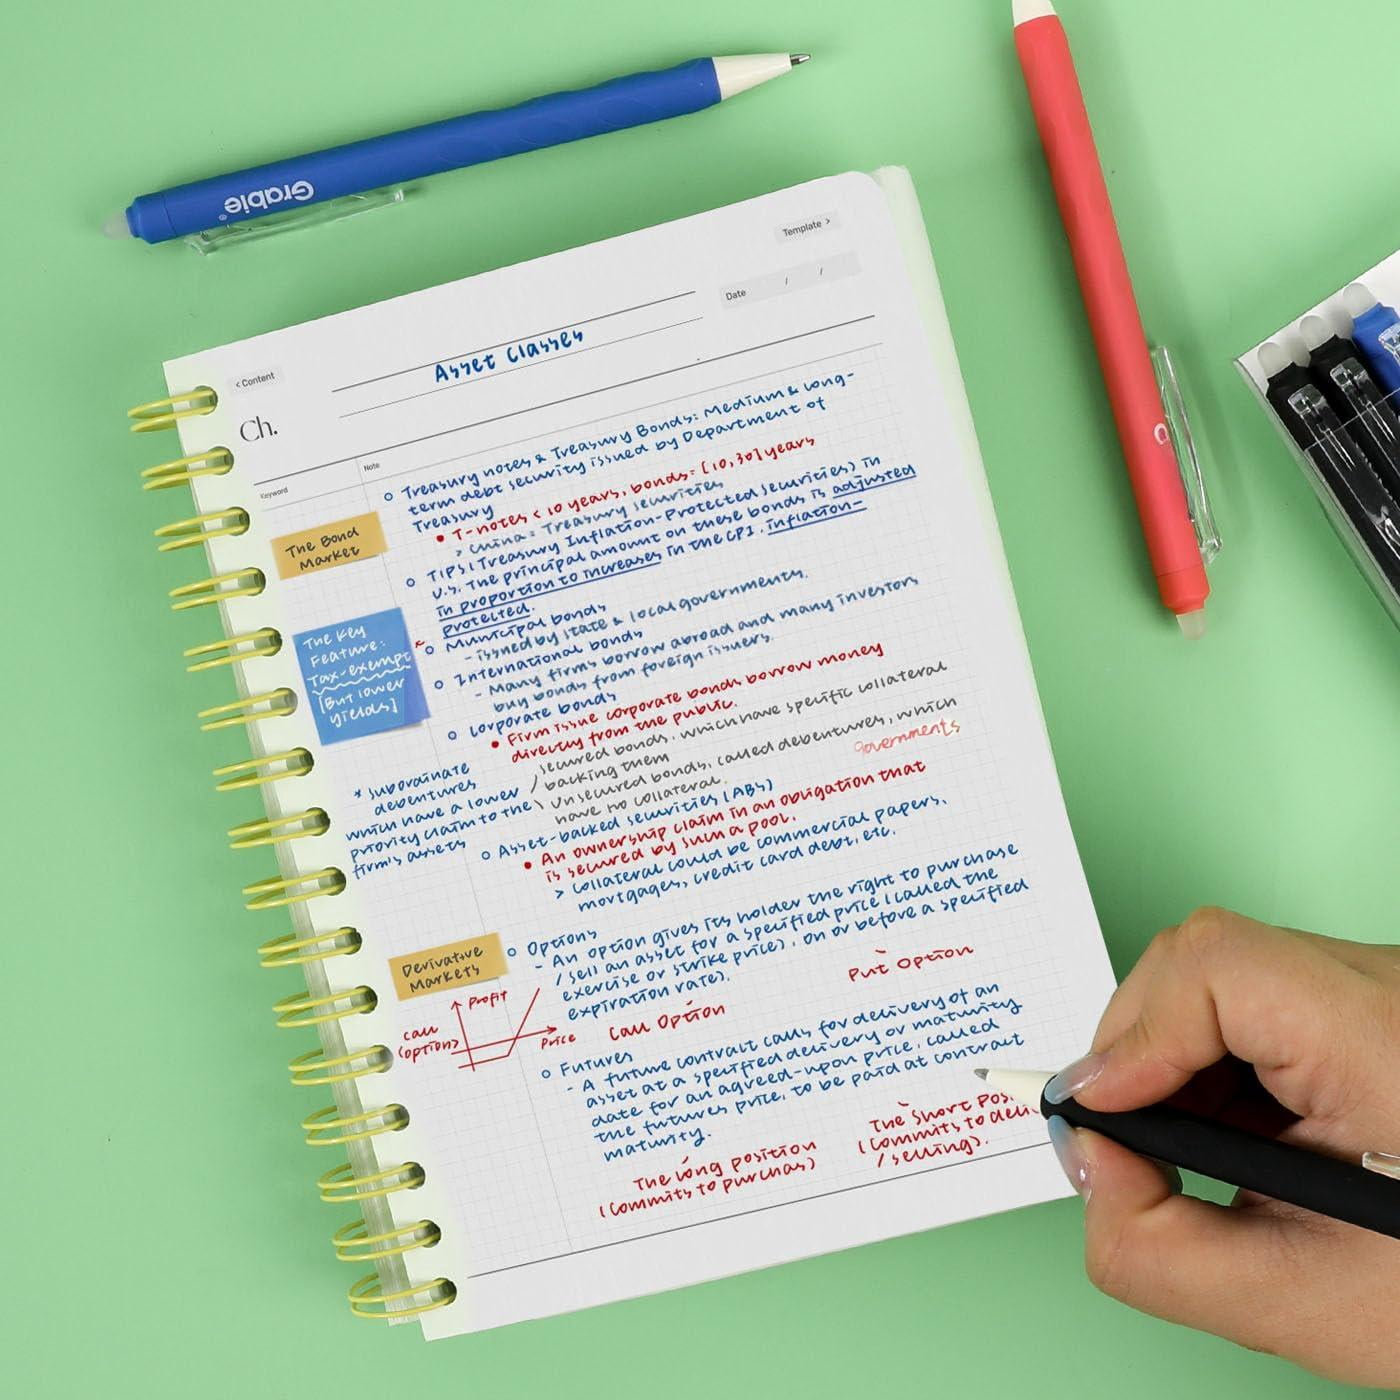 Grabie®
Template >
Date / /
Asset Classes
< Content
Ch.
Keyword
Note
The Bond
Market
Treasury notes & Treasury Bonds: Medium & long-
term debt security issued by Department of
Treasury
• T-notes < 10 years, bonds = [10,30] years
> China = Treasury securities
TIPS (Treasury Inflation-Protected Securities) in
U.S. The principal amount on these bonds is adjusted
in proportion to increases in the CPI. inflation-
protected.
The Key
Feature:
Tax-exempt
[But lower
yields]
* Municipal bonds
- issued by state & local governments.
International bonds
- Many firms borrow abroad and many investors
buy bonds from foreign issuers.
Corporate bonds
• Firm issue corporate bonds borrow money
directly from the public.
secured bonds, which have specific collateral
/ backing them
\ Unsecured bonds, called debentures, which
have no collateral.
governments
* Subordinate
debentures
which have a lower
priority claim to the
firm's assets
Asset-backed securities (ABS)
• An ownership claim in an obligation that
is secured by such a pool.
> Collateral could be commercial papers,
mortgages, credit card debt, etc.
Derivative
Markets
Options
- An option gives its holder the right to purchase
/ sell an asset for a specified price (called the
exercise or strike price), on or before a specified
expiration rate).
Call Option
Put Option
Profit
Call
(option)
Price
Futures
- A future contract calls for delivery of an
asset at a specified delivery or maturity
date for an agreed-upon price, called
the futures price, to be paid at contract
maturity.
The long position
(commits to purchas)
The short posi
(commits to deli
/ selling).